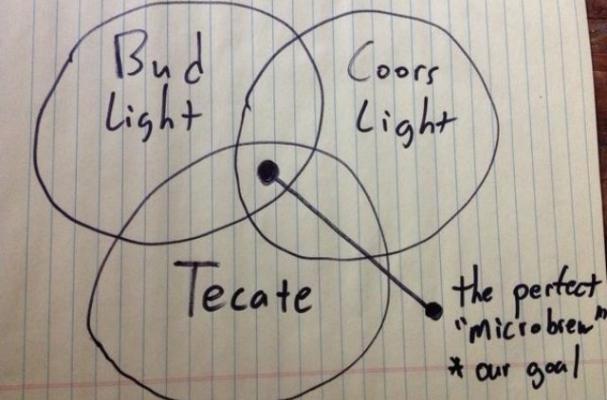 Bud
Light
Coors
Light
Tecate
the perfect
"microbrew"
* our goal